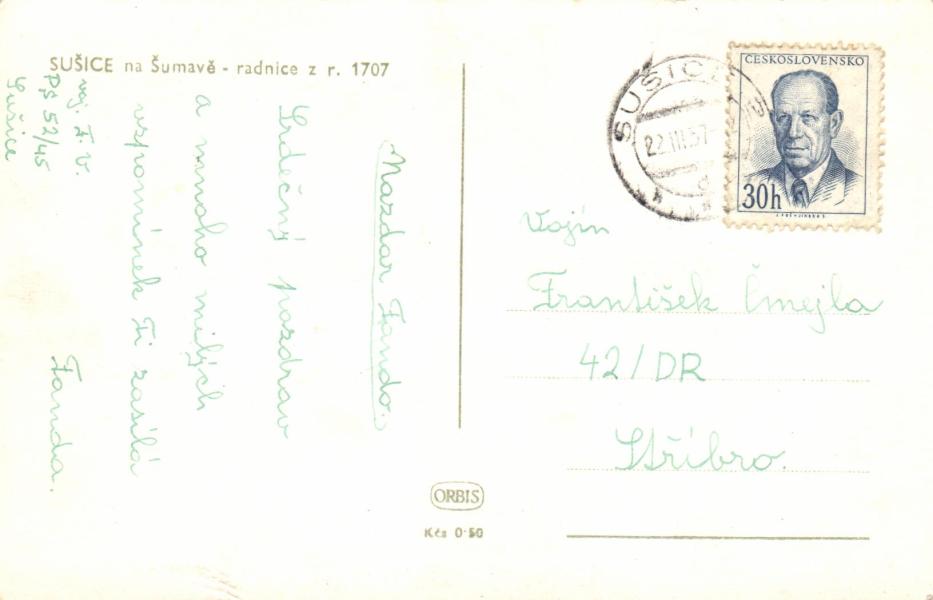 SUŠICE na Šumavě - radnice z r. 1707
Nazdar Fando.
Srdečný pozdrav
a mnoho milých
vzpomínek Ti zasílá
Fanda.
voj. F. V.
PS 52/45
Sušice
SUŠICE
22.III.57
ČESKOSLOVENSKO
30h
Vojín
František Čmejla
42/DR
Stříbro.
ORBIS
Kčs 0·50